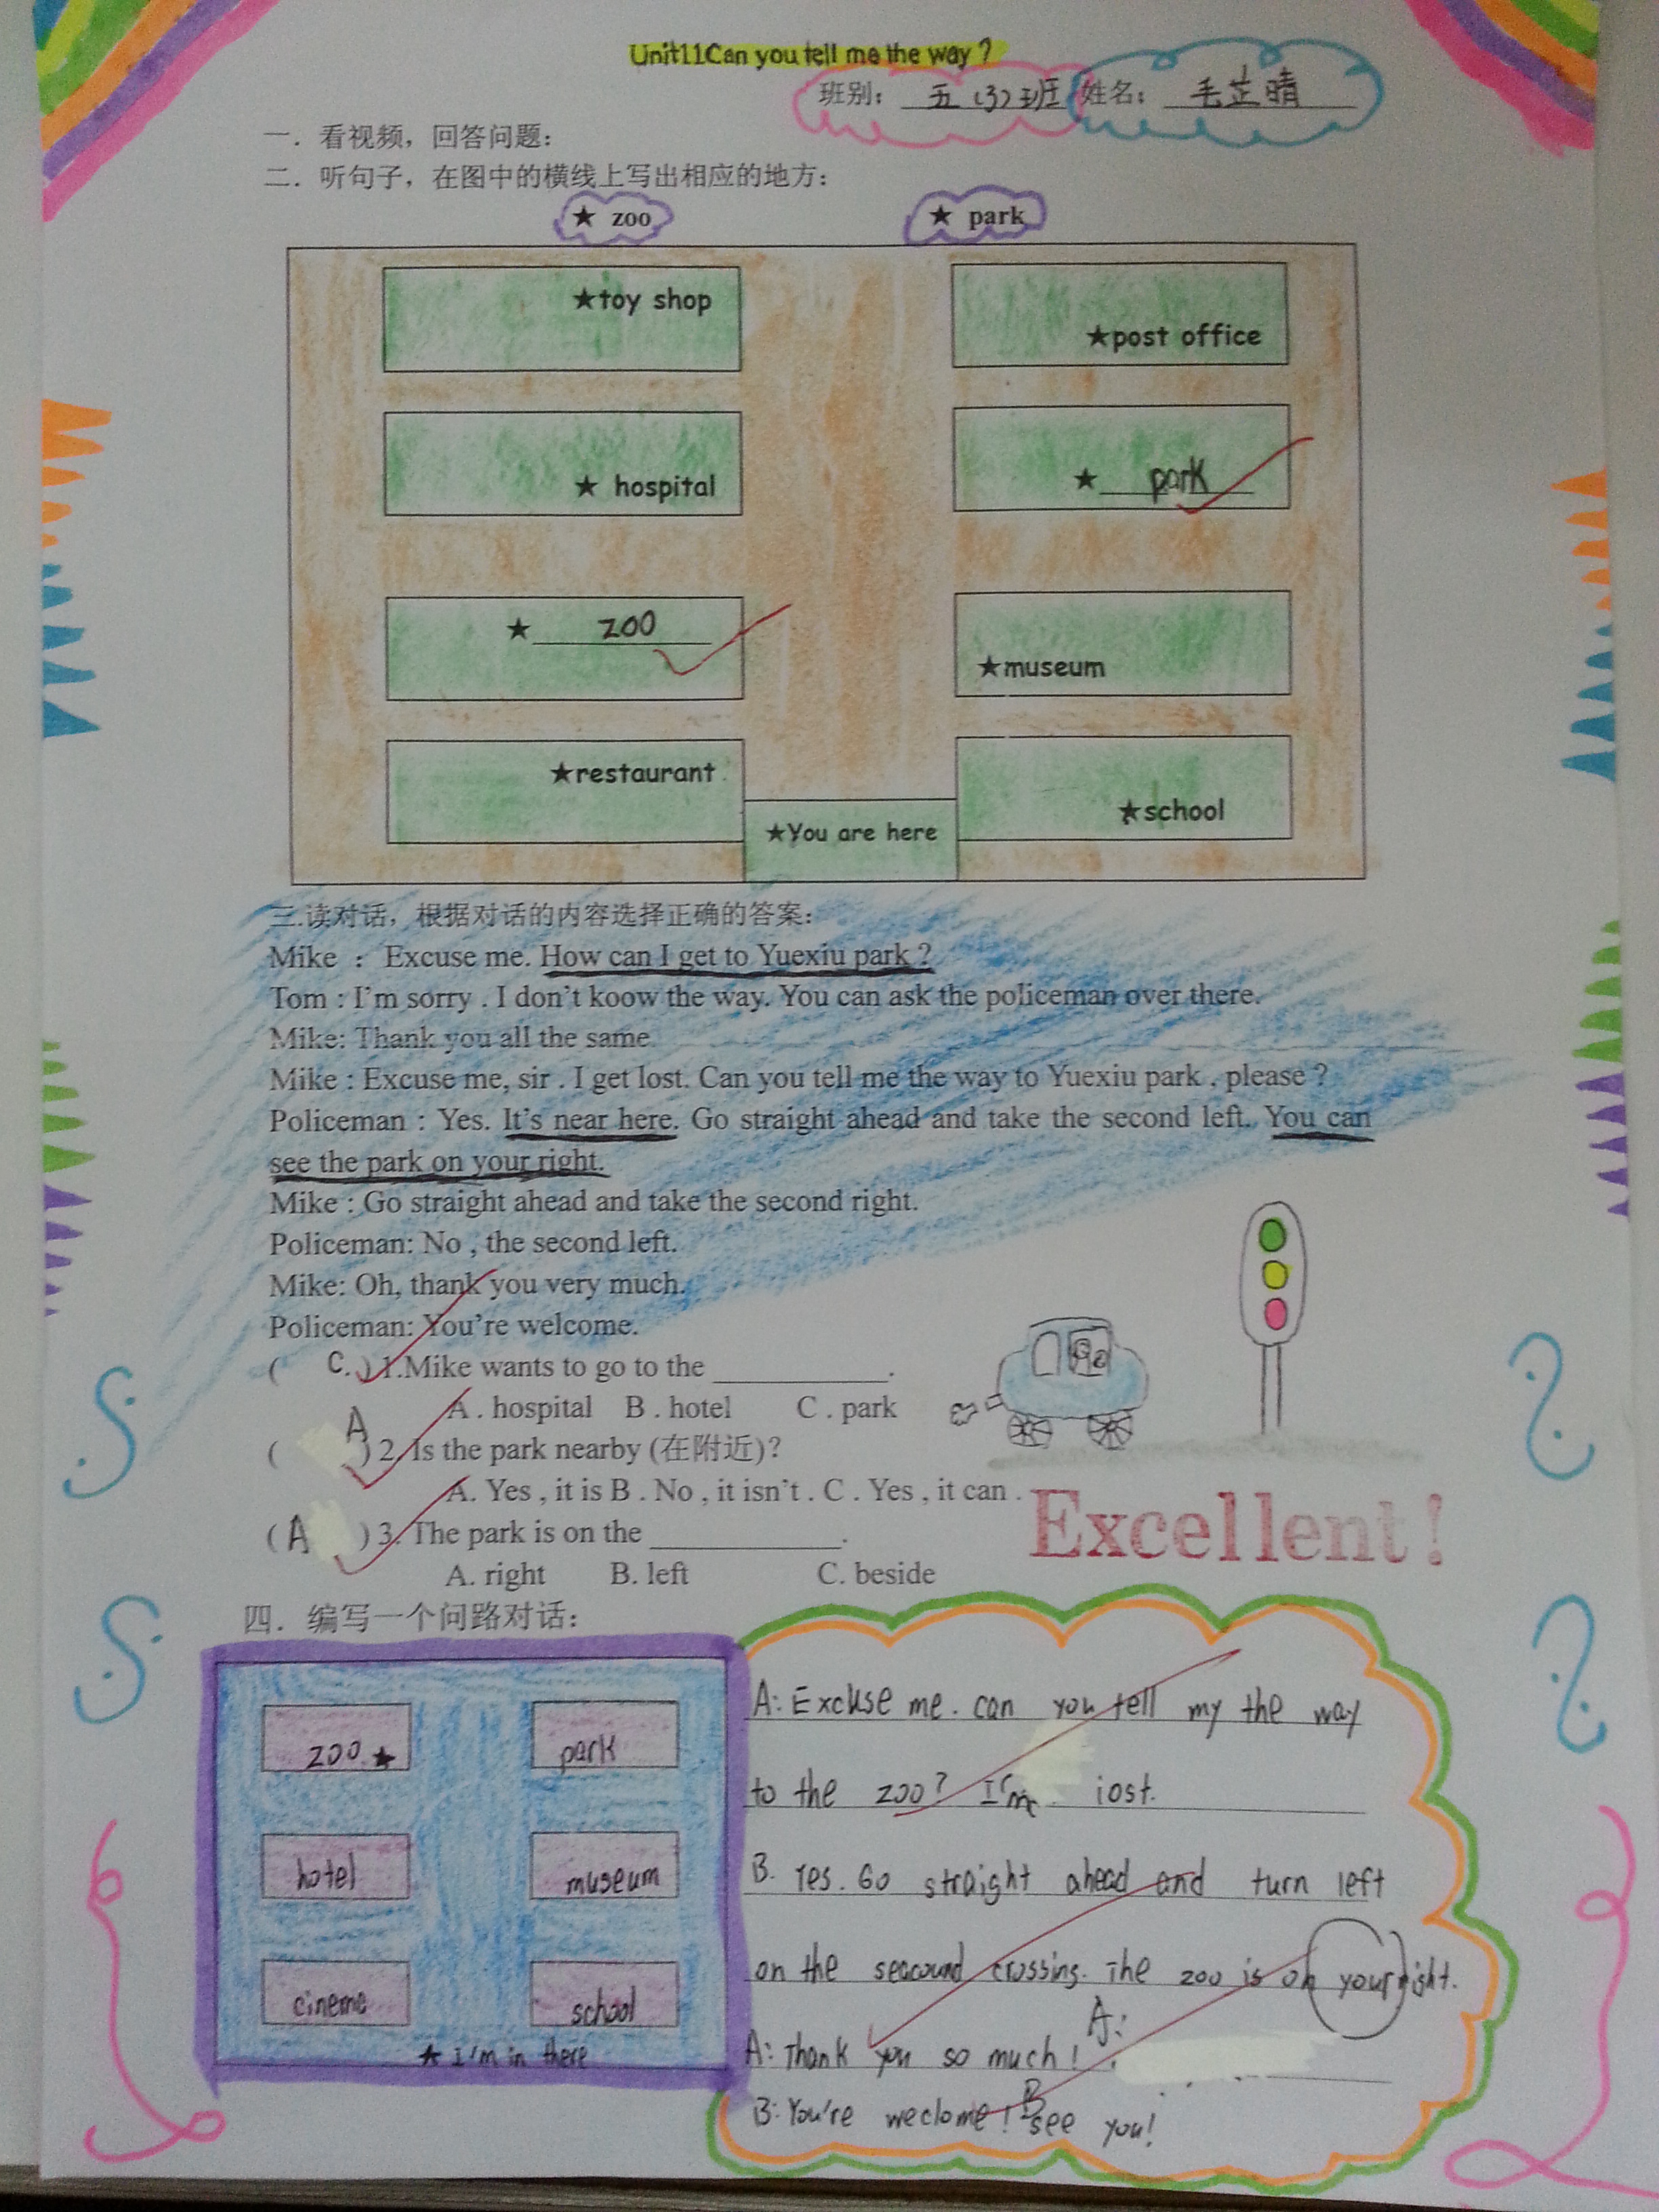 Unit11Can you tell me the way ?
班别： 五（3）班 姓名： 毛芷晴
一．看视频，回答问题：
二．听句子，在图中的横线上写出相应的地方：
★ zoo ★ park
★toy shop
★post office
★ hospital
★ park
★ zoo
★museum
★restaurant
★school
★You are here
三.读对话，根据对话的内容选择正确的答案：
Mike ： Excuse me. How can I get to Yuexiu park ?
Tom : I'm sorry . I don't koow the way. You can ask the policeman over there.
Mike: Thank you all the same.
Mike : Excuse me, sir . I get lost. Can you tell me the way to Yuexiu park , please ?
Policeman : Yes. It's near here. Go straight ahead and take the second left. You can
see the park on your right.
Mike : Go straight ahead and take the second right.
Policeman: No , the second left.
Mike: Oh, thank you very much.
Policeman: You're welcome.
( C. ) 1.Mike wants to go to the ____________.
A . hospital B . hotel C . park
( A ) 2. Is the park nearby (在附近)?
A. Yes , it is B . No , it isn't . C . Yes , it can .
( A ) 3. The park is on the _____________.
A. right B. left C. beside
Excellent!
四．编写一个问路对话：
zoo ★ park
hotel museum
cineme school
★ I'm in there
A: Excuse me. can you tell my the way
to the zoo? I'm iost.
B. Yes. Go straight ahead and turn left
on the seacound crossing. The zoo is on your right.
A: Thank you so much! A:
B: You're weclome! B see you!